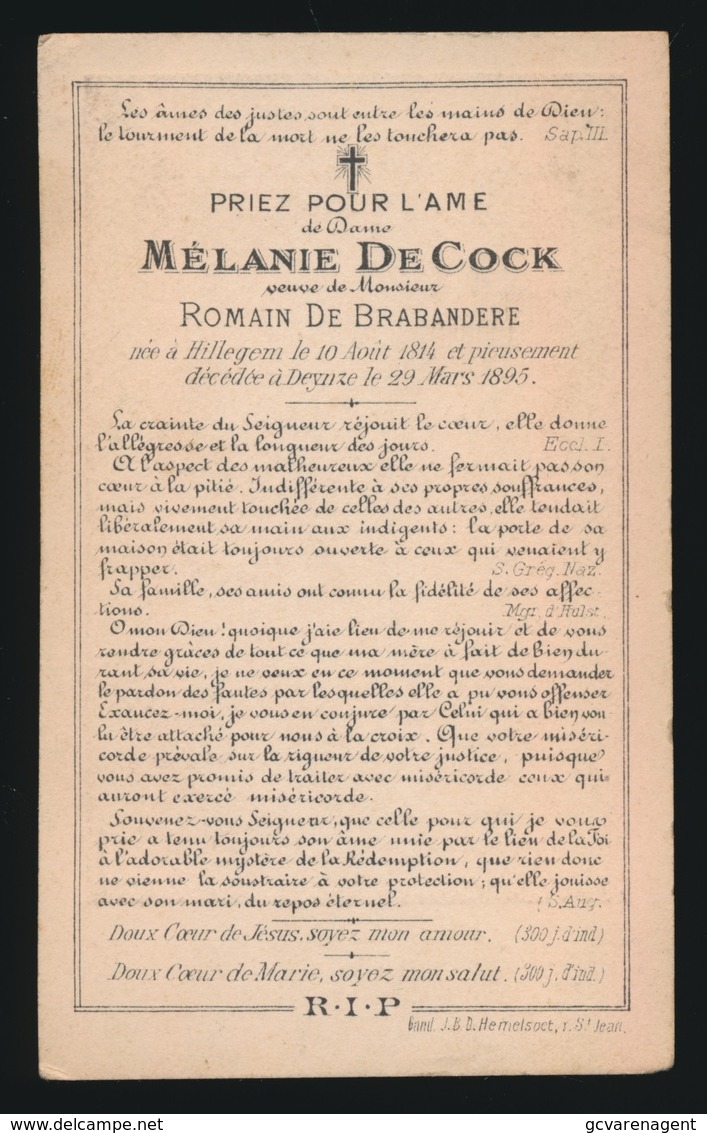 Les âmes des justes sont entre les mains de Dieu:
le tourment de la mort ne les touchera pas. Sap. III.
PRIEZ POUR L'AME
de Dame
MÉLANIE DE COCK
veuve de Monsieur
ROMAIN DE BRABANDERE
née à Hillegem le 10 Août 1814 et pieusement
décédée à Deynze le 29 Mars 1895.
La crainte du Seigneur réjouit le cœur, elle donne
l'allégresse et la longueur des jours. Eccl. I.
A l'aspect des malheureux elle ne fermait pas son
cœur à la pitié. Indifférente à ses propres souffrances,
mais vivement touchée de celles des autres, elle tendait
libéralement sa main aux indigents: la porte de sa
maison était toujours ouverte à ceux qui venaient y
frapper. S. Grég. Naz.
Sa famille, ses amis ont connu la fidélité de ses affec-
tions. Mgr. d'Hulst.
O mon Dieu! quoique j'aie lieu de me réjouir et de vous
rendre grâces de tout ce que ma mère à fait de bien du-
rant sa vie, je ne veux en ce moment que vous demander
le pardon des fautes par lesquelles elle a pu vous offenser
Exaucez-moi, je vous en conjure par Celui qui a bien vou-
lu être attaché pour nous à la croix. Que votre miséri-
corde prévale sur la rigueur de votre justice, puisque
vous avez promis de traiter avec miséricorde ceux qui
auront exercé miséricorde.
Souvenez-vous Seigneur, que celle pour qui je vous
prie a tenu toujours son âme unie par le lien de la Foi
à l'adorable mystère de la Rédemption, que rien donc
ne vienne la soustraire à votre protection; qu'elle jouisse
avec son mari, du repos éternel. (S. Aug.
Doux Cœur de Jésus, soyez mon amour. (300 j. d'ind)
Doux Cœur de Marie, soyez mon salut. (300 j. d'ind.)
R·I·P
Gand. J. B. D. Hemelsoet, r. St Jean.
delcampe.net
gcvarenagent